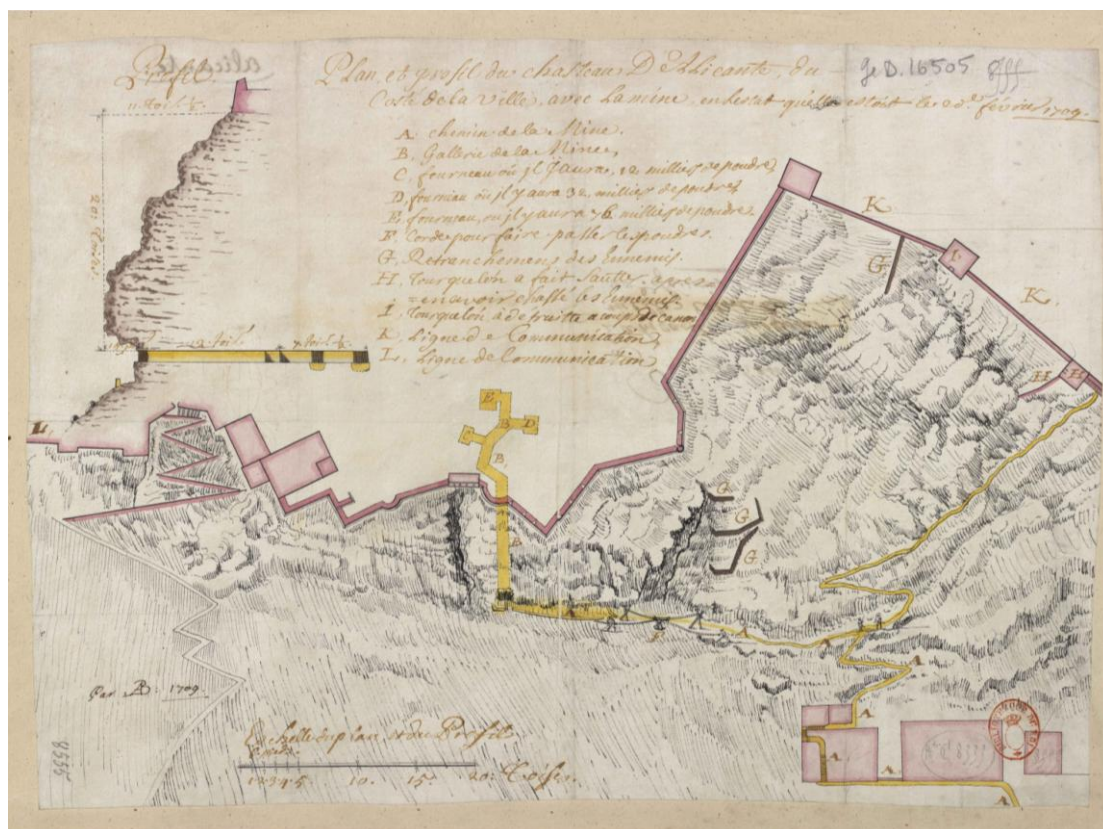 Profil
Plan et profil du chasteau D'Alicante, du
Costé de la Ville, avec la mine, en l'estat qu'elle estoit le 20e. février 1709.
Ge D. 16505
A. chemin de la Mine.
B. Gallerie de la Mine,
C. fourneau où il y aura, 12, milliers de poudre
D. fourneau où il y aura 32, milliers de poudre
E. fourneau, où il y aura 76. milliers de poudre
F. Corde pour faire passer les poudres.
G. Retranchemens des Ennemis.
H. Tour que l'on a fait sauter, apres
en avoir chassé les Ennemis
I. Tour que l'on à detruitte a coups de canon
K. Ligne de Communication,
L. Ligne de Communication
K.
I
G
K.
H
L.
E
B
D
B.
G
G
G
B
A
F
A
A
A
A
A
A
A
Par 1709
Eschelle du plan et du Profil
1 2 3 4 5 10. 15. 20. Toises.
8555